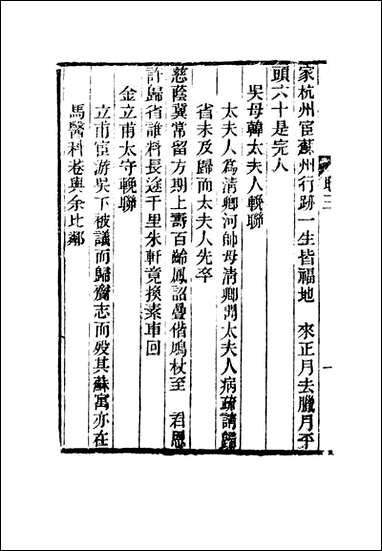 家杭州宦蘇州行跡一生皆福地　來正月去臘月平
頭六十是完人
吳母韓太夫人輓聯
太夫人爲清卿河帥母清卿謂太夫人病疏請歸
省未及歸而太夫人先卒
慈蔭冀常留方期上壽百齡鳳詔疊偕鳩杖至　君恩
許歸省誰料長途千里朱軒竟換素車回
金立甫太守輓聯
立甫宦游吳下被議而歸齎志而歿其蘇寓亦在
馬醫科巷與余比鄰
聯三
一